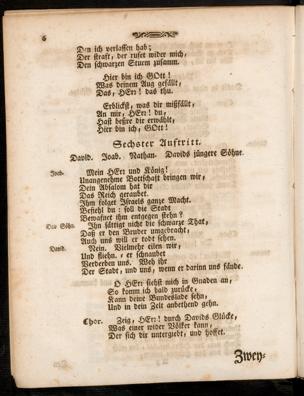 6
Den ich verlassen hab;
Der straft, der rufet wider mich,
Den schwarzen Sturm zusamm.
Hier bin ich GOtt!
Was deinem Aug gefällt,
Das, HErr! das thu.
Erblickst, was dir mißfällt,
An mir, HErr! du,
Hast beßre dir erwählt,
Hier bin ich, GOtt!
Sechster Auftritt.
David. Joab. Nathan. Davids jüngere Söhne.
Joab. Mein HErr und König!
Unangenehme Bottschaft bringen wir,
Dein Absalom hat dir
Das Reich geraubet.
Ihm folget Israels ganze Macht.
Befiehl du: soll die Stadt
Bewafnet ihm entgegen stehn?
Ihn sättigt nicht die schwarze That,
Daß er den Bruder umgebracht,
Auch uns will er todt sehen.
David. Nein. Vielmehr eilen wir,
Und fliehn. er schnaubet
Verderben uns. Weh ihr
Der Stadt, und uns, wenn er darinn uns fände.
O HErr siehst mich in Gnaden an,
So komm ich bald zurücke,
Kann deine Bundeslade sehn,
Und in dein Zelt anbethend gehn.
Chor. Zeig, HErr! durch Davids Glücke,
Was einer wider Völker kann,
Der sich dir untergiebt, und hoffet.
Zwey-